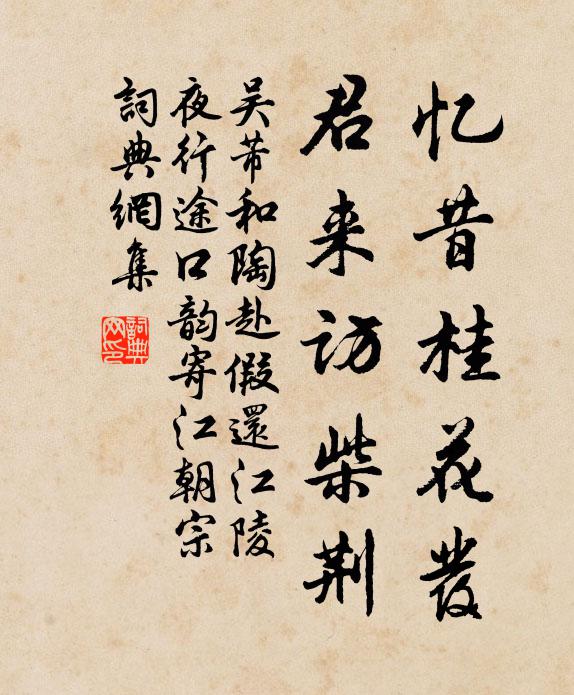 忆昔桂花發
君来访柴荆
吴芾和陶赴假還江陵
夜行途口韵寄江朝宗
詞典網集
詞典网印